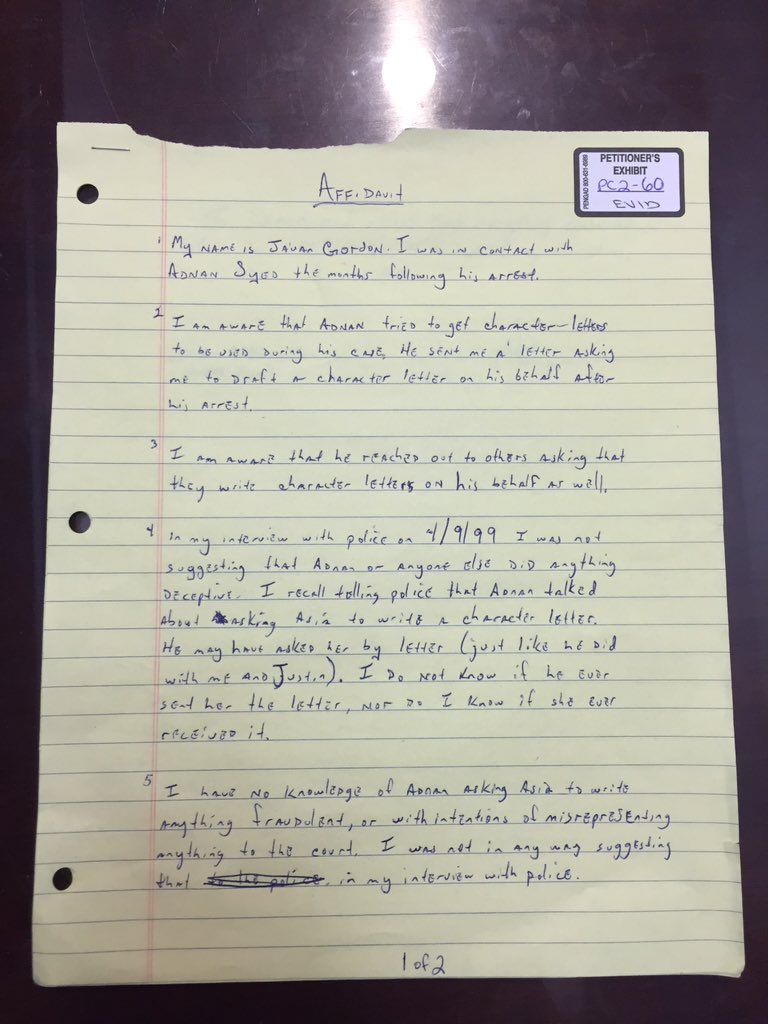 PENGAD 800-631-6989
PETITIONER'S
EXHIBIT
PC2-60
EVID
AFFIDAVIT
1 My name is Ja'uan Gordon. I was in contact with
Adnan Syed the months following his arrest.
2 I am aware that Adnan tried to get character-letters
to be used during his case. He sent me a letter asking
me to draft a character letter on his behalf after
his arrest.
3 I am aware that he reached out to others asking that
they write character letters on his behalf as well.
4 In my interview with police on 4/9/99 I was not
suggesting that Adnan or anyone else did anything
deceptive. I recall telling police that Adnan talked
about asking Asia to write a character letter.
He may have asked her by letter (just like he did
with me and Justin). I do not know if he ever
sent her the letter, nor do I know if she ever
received it.
5 I have no knowledge of Adnan asking Asia to write
anything fraudulent, or with intentions of misrepresenting
anything to the court. I was not in any way suggesting
that to the police. in my interview with police.
1 of 2